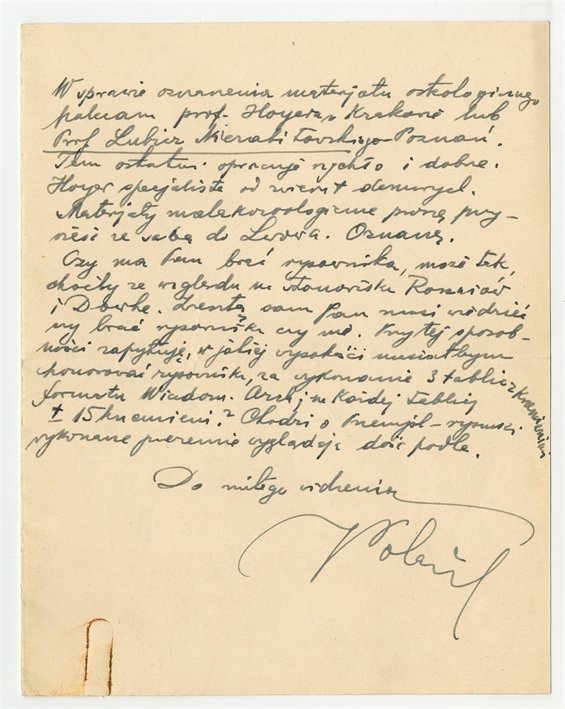 W sprawie oznaczenia materjału osteologicznego
polecam prof. Hoyera w Krakowie lub
Prof Lubicz Niezabitowskiego Poznań.
Ten ostatni opracuje rychło i dobrze.
Hoyer specjalista od zwierząt
Materjały malakozoologiczne proszę przy-
wieść ze sobą do Lwowa. Oznaczę.
Czy ma Pan brać rysownika, może tak,
choćby ze względu na stanowiska
i . Zresztą sam Pan musi wiedzieć
czy brać rysownika czy nie. Przy tej sposob-
ności zapytuję, w jakiej wysokości musiałbym
honorować rysownika, za wykonanie 3 tablic z krzemieniami
formatu Wiadom. Arch, na każdej tablicy
± 15 krzemieni? Chodzi o Przemyśl - rysunki
wykonane przezemnie wyglądają dość podle.
Do miłego widzenia